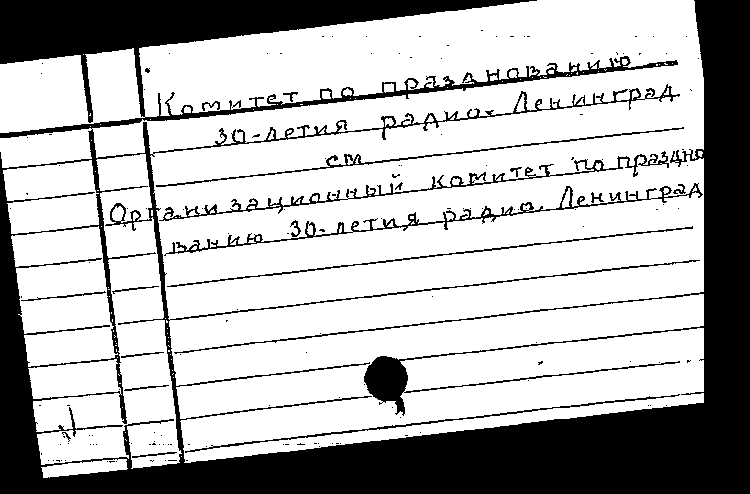 Комитет по празднованию
30-летия радио. Ленинград.
см
Организационный комитет по праздно
ванию 30-летия радио. Ленинград